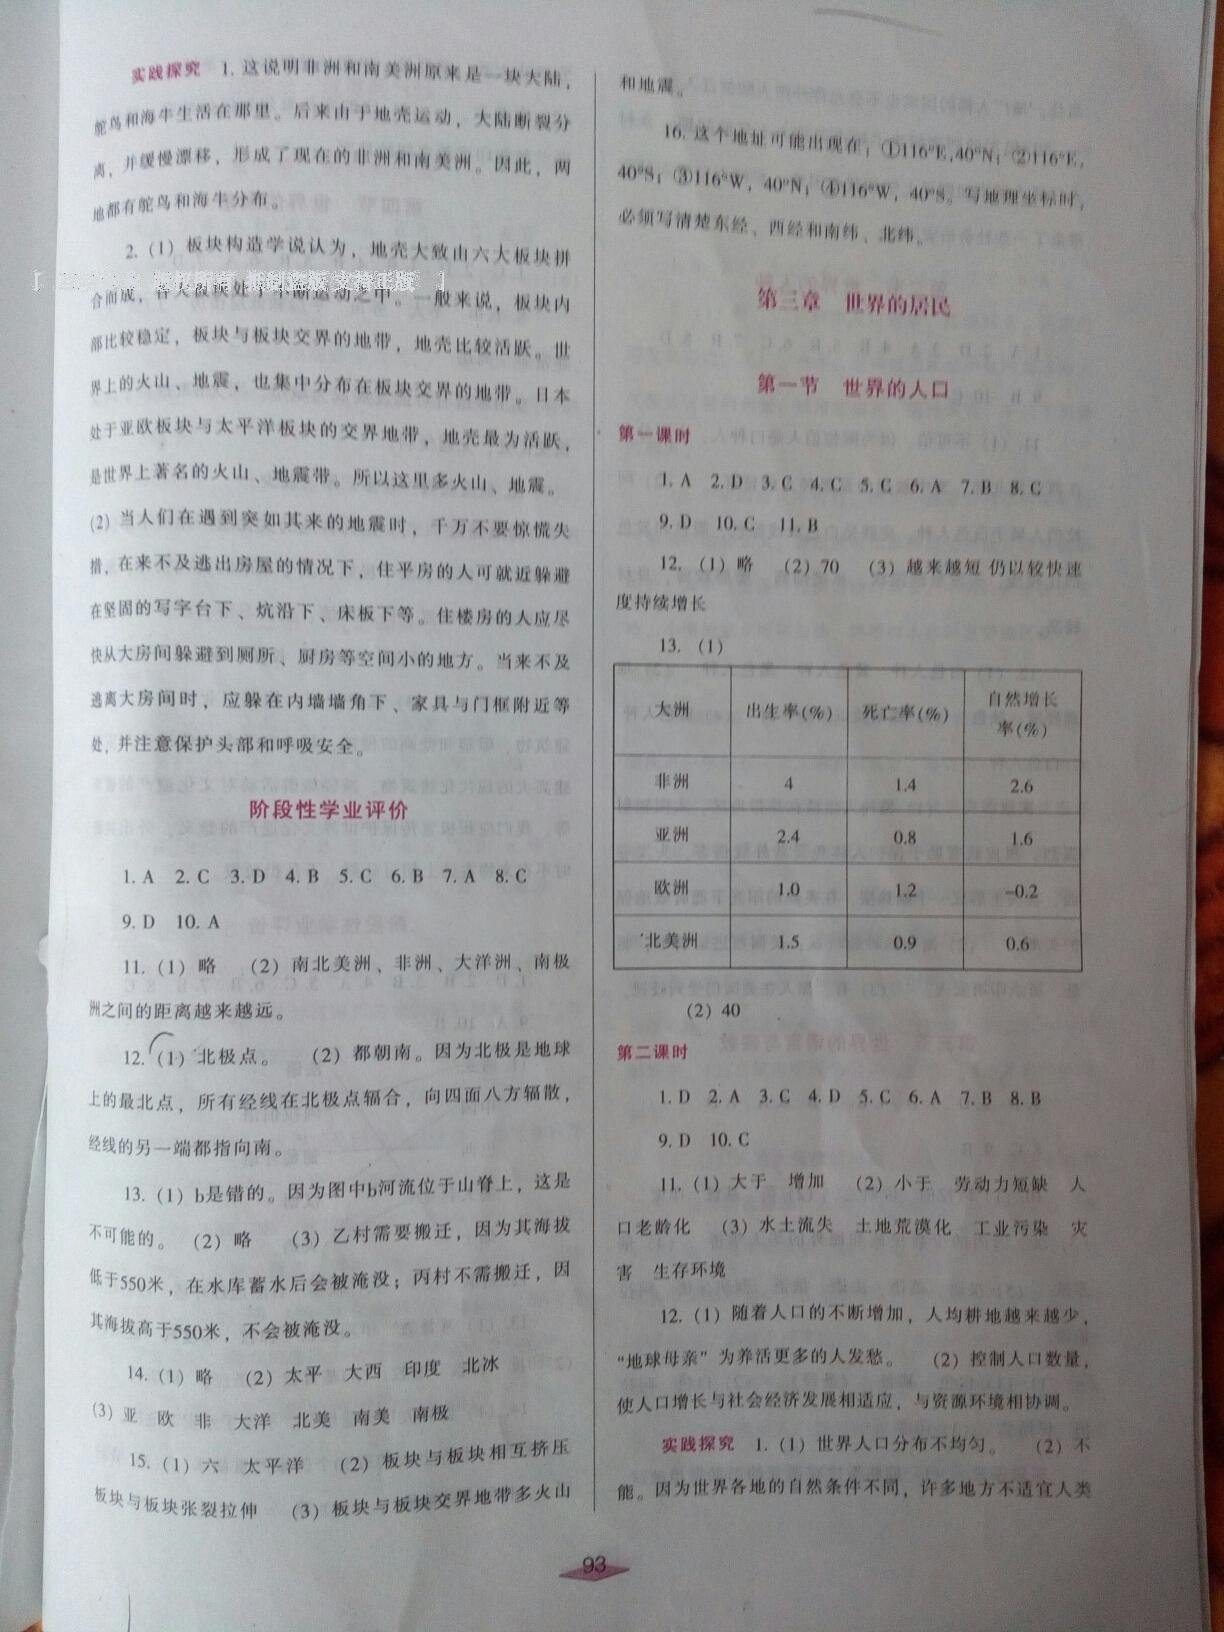 实践探究 1. 这说明非洲和南美洲原来是一块大陆，
鸵鸟和海牛生活在那里。后来由于地壳运动，大陆断裂分
离，并缓慢漂移，形成了现在的非洲和南美洲。因此，两
地都有鸵鸟和海牛分布。
2. (1) 板块构造学说认为，地壳大致由六大板块拼
合而成，各大板块处于不断运动之中。一般来说，板块内
部比较稳定，板块与板块交界的地带，地壳比较活跃。世
界上的火山、地震，也集中分布在板块交界的地带。日本
处于亚欧板块与太平洋板块的交界地带，地壳最为活跃，
是世界上著名的火山、地震带。所以这里多火山、地震。
(2) 当人们在遇到突如其来的地震时，千万不要惊慌失
措，在来不及逃出房屋的情况下，住平房的人可就近躲避
在坚固的写字台下、炕沿下、床板下等。住楼房的人应尽
快从大房间躲避到厕所、厨房等空间小的地方。当来不及
逃离大房间时，应躲在内墙墙角下、家具与门框附近等
处，并注意保护头部和呼吸安全。
阶段性学业评价
1. A 2. C 3. D 4. B 5. C 6. B 7. A 8. C
9. D 10. A
11. (1) 略 (2) 南北美洲、非洲、大洋洲、南极
洲之间的距离越来越远。
12. (1) 北极点。 (2) 都朝南。因为北极是地球
上的最北点，所有经线在北极点辐合，向四面八方辐散，
经线的另一端都指向南。
13. (1) b是错的。因为图中b河流位于山脊上，这是
不可能的。 (2) 略 (3) 乙村需要搬迁，因为其海拔
低于550米，在水库蓄水后会被淹没；丙村不需搬迁，因
其海拔高于550米，不会被淹没。
14. (1) 略 (2) 太平 大西 印度 北冰
(3) 亚 欧 非 大洋 北美 南美 南极
15. (1) 六 太平洋 (2) 板块与板块相互挤压
板块与板块张裂拉伸 (3) 板块与板块交界地带多火山
和地震。
16. 这个地址可能出现在：①116°E, 40°N；②116°E,
40°S；③116°W, 40°N；④116°W, 40°S。写地理坐标时，
必须写清楚东经、西经和南纬、北纬。
第三章 世界的居民
第一节 世界的人口
第一课时
1. A 2. D 3. C 4. C 5. C 6. A 7. B 8. C
9. D 10. C 11. B
12. (1) 略 (2) 70 (3) 越来越短 仍以较快速
度持续增长
13. (1)
大洲 出生率(%) 死亡率(%) 自然增长率(%)
非洲 4 1.4 2.6
亚洲 2.4 0.8 1.6
欧洲 1.0 1.2 -0.2
北美洲 1.5 0.9 0.6
(2) 40
第二课时
1. D 2. A 3. C 4. D 5. C 6. A 7. B 8. B
9. D 10. C
11. (1) 大于 增加 (2) 小于 劳动力短缺 人
口老龄化 (3) 水土流失 土地荒漠化 工业污染 灾
害 生存环境
12. (1) 随着人口的不断增加，人均耕地越来越少，
“地球母亲”为养活更多的人发愁。 (2) 控制人口数量，
使人口增长与社会经济发展相适应，与资源环境相协调。
实践探究 1. (1) 世界人口分布不均匀。 (2) 不
能。因为世界各地的自然条件不同，许多地方不适宜人类
93